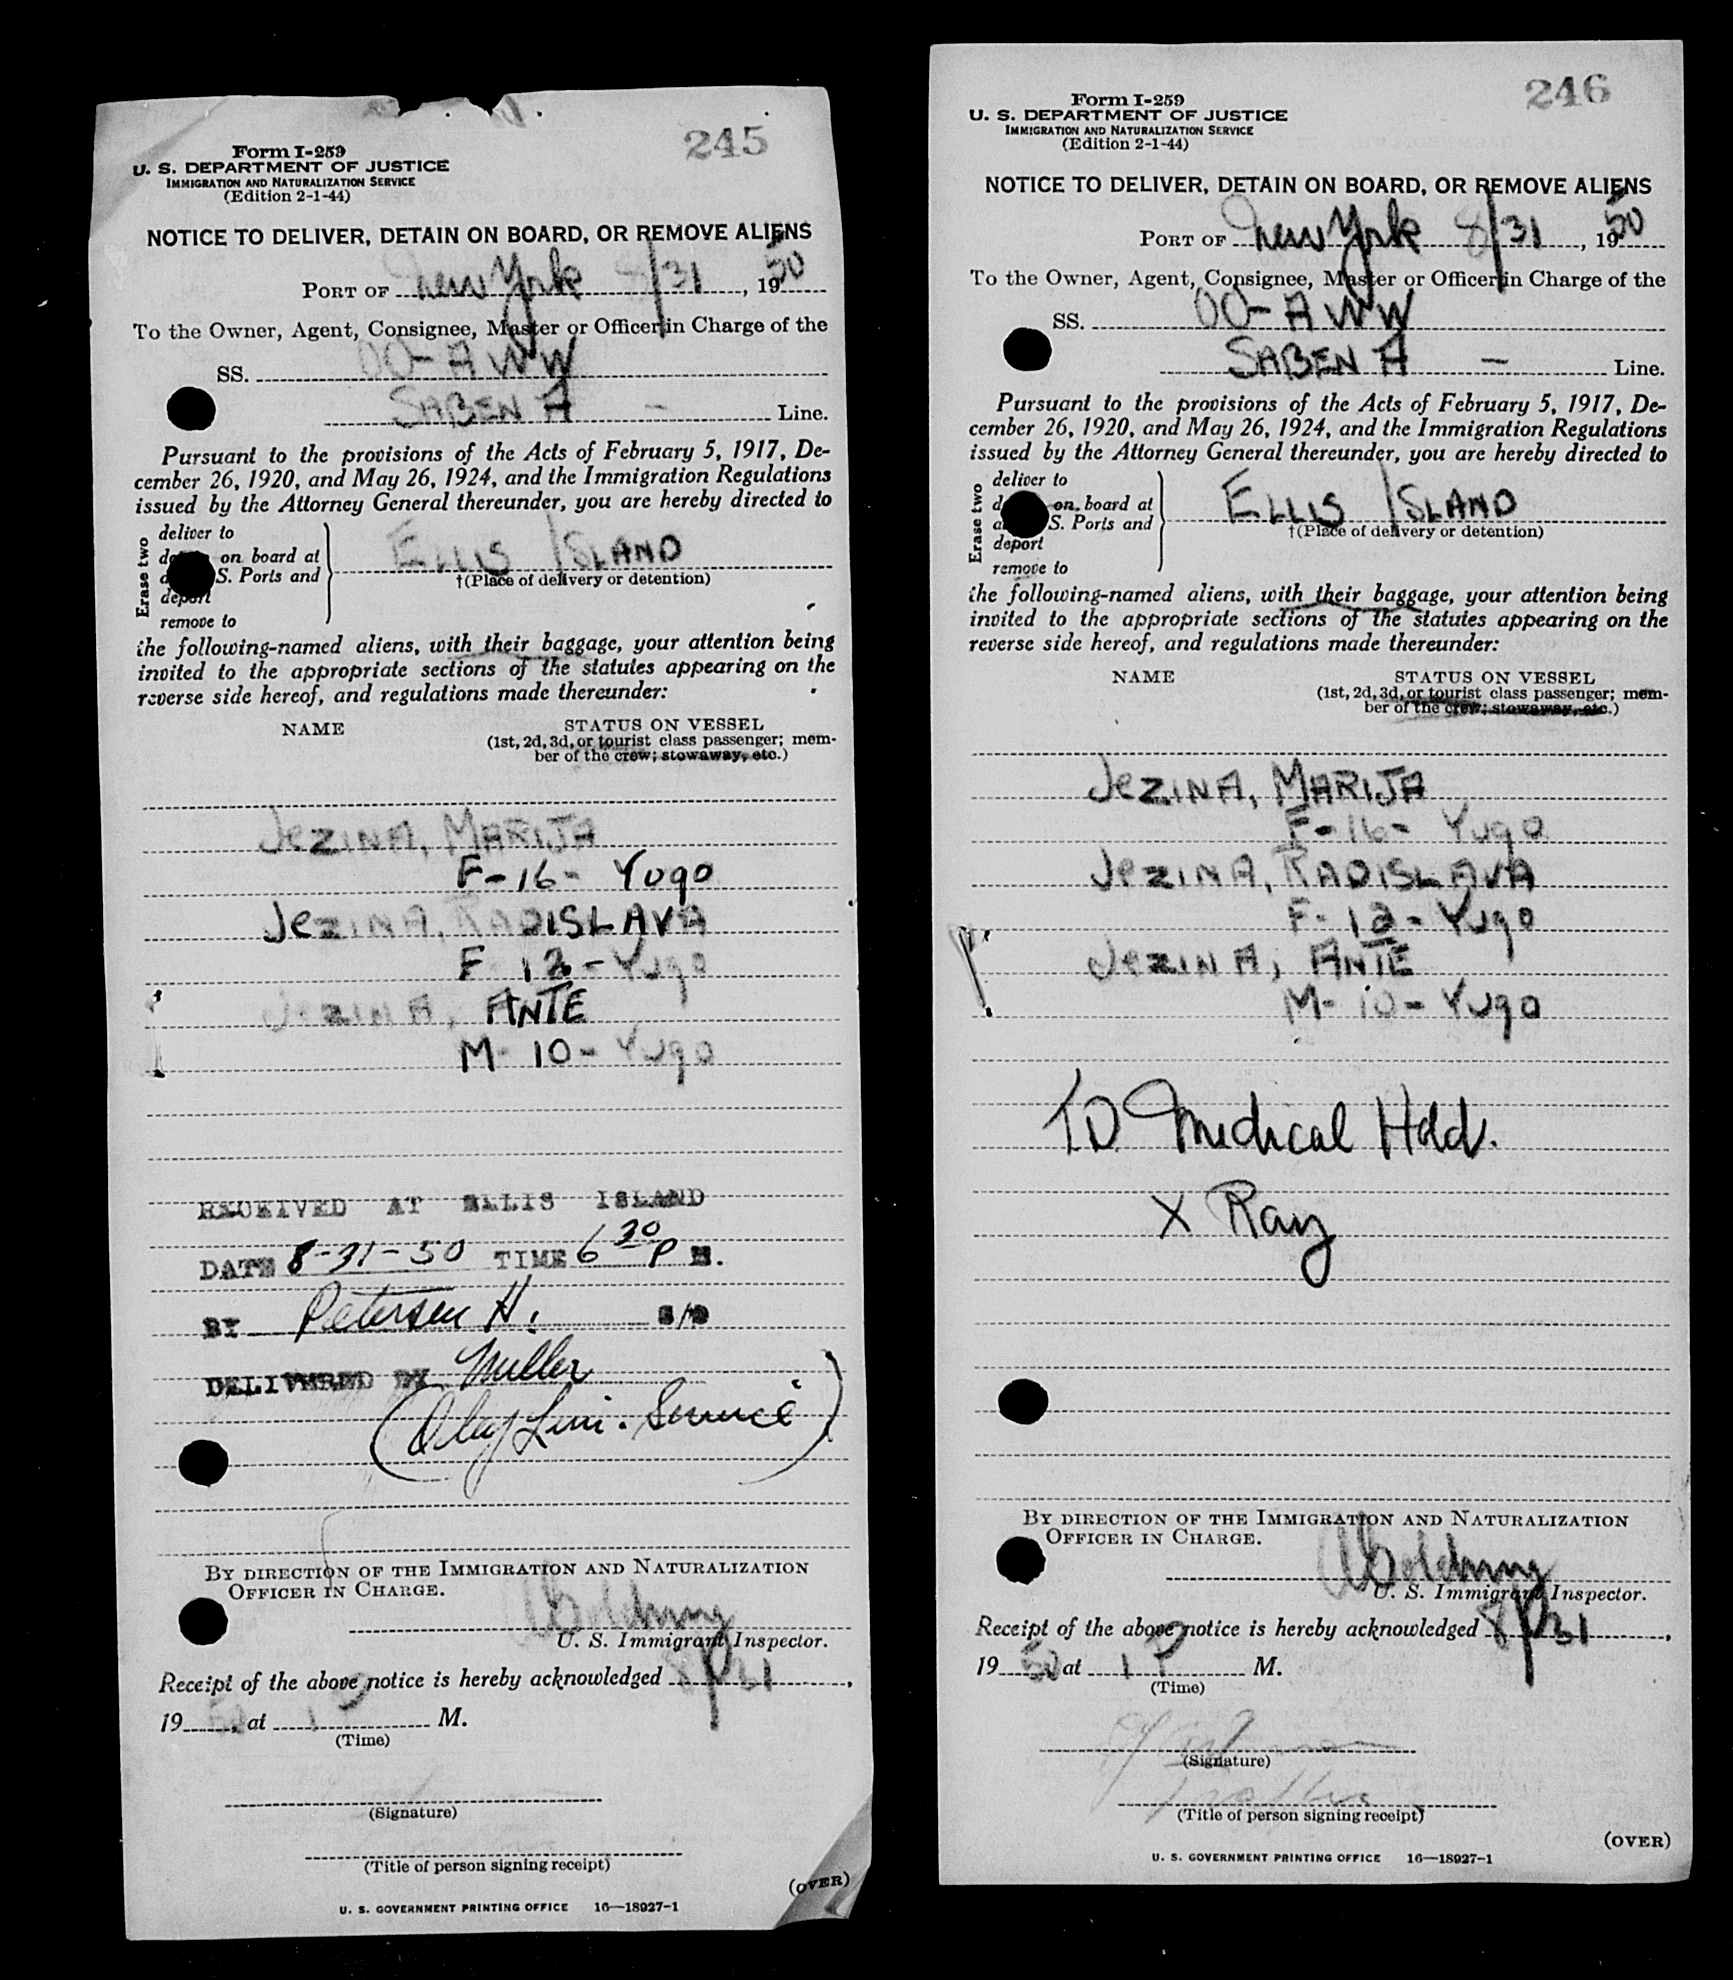 245
Form I-259
U. S. DEPARTMENT OF JUSTICE
IMMIGRATION AND NATURALIZATION SERVICE
(Edition 2-1-44)
NOTICE TO DELIVER, DETAIN ON BOARD, OR REMOVE ALIENS
PORT OF New York 8/31, 1950
To the Owner, Agent, Consignee, Master or Officer in Charge of the
SS. OO-AWW
SABENA - Line.
Pursuant to the provisions of the Acts of February 5, 1917, De-
cember 26, 1920, and May 26, 1924, and the Immigration Regulations
issued by the Attorney General thereunder, you are hereby directed to
Erase two
deliver to
on board at
S. Ports and
deport
remove to
ELLIS ISLAND
†(Place of delivery or detention)
the following-named aliens, with their baggage, your attention being
invited to the appropriate sections of the statutes appearing on the
reverse side hereof, and regulations made thereunder:
NAME STATUS ON VESSEL
(1st, 2d, 3d, or tourist class passenger; mem-
ber of the crew; stowaway, etc.)
JEZINA, MARIJA
F-16- Yugo
JEZINA, RADISLAVA
F 12 - Yugo
JEZINA, ANTE
M- 10- Yugo
RECEIVED AT ELLIS ISLAND
DATE 8-31-50 TIME 6 30 P M.
BY Petersen H. S/O
DELIVERED BY Miller
BY DIRECTION OF THE IMMIGRATION AND NATURALIZATION
OFFICER IN CHARGE.
U. S. Immigrant Inspector.
Receipt of the above notice is hereby acknowledged 8/31,
1950, at 1 P M.
(Time)
(Signature)
(Title of person signing receipt)
(OVER)
U. S. GOVERNMENT PRINTING OFFICE 16—18927-1
246
Form I-259
U. S. DEPARTMENT OF JUSTICE
IMMIGRATION AND NATURALIZATION SERVICE
(Edition 2-1-44)
NOTICE TO DELIVER, DETAIN ON BOARD, OR REMOVE ALIENS
PORT OF New York 8/31, 1950
To the Owner, Agent, Consignee, Master or Officer in Charge of the
SS. OO-AWW
SABENA - Line.
Pursuant to the provisions of the Acts of February 5, 1917, De-
cember 26, 1920, and May 26, 1924, and the Immigration Regulations
issued by the Attorney General thereunder, you are hereby directed to
Erase two
deliver to
on board at
S. Ports and
deport
remove to
ELLIS ISLAND
†(Place of delivery or detention)
the following-named aliens, with their baggage, your attention being
invited to the appropriate sections of the statutes appearing on the
reverse side hereof, and regulations made thereunder:
NAME STATUS ON VESSEL
(1st, 2d, 3d, or tourist class passenger; mem-
ber of the crew; stowaway, etc.)
JEZINA, MARIJA
F-16- Yugo
JEZINA, RADISLAVA
F-12- Yugo
JEZINA, ANTE
M-10- Yugo
TD Medical Hold.
X Ray
BY DIRECTION OF THE IMMIGRATION AND NATURALIZATION
OFFICER IN CHARGE.
U. S. Immigrant Inspector.
Receipt of the above notice is hereby acknowledged 8/31,
1950 at 1 P M.
(Time)
(Signature)
(Title of person signing receipt)
(OVER)
U. S. GOVERNMENT PRINTING OFFICE 16—18927-1